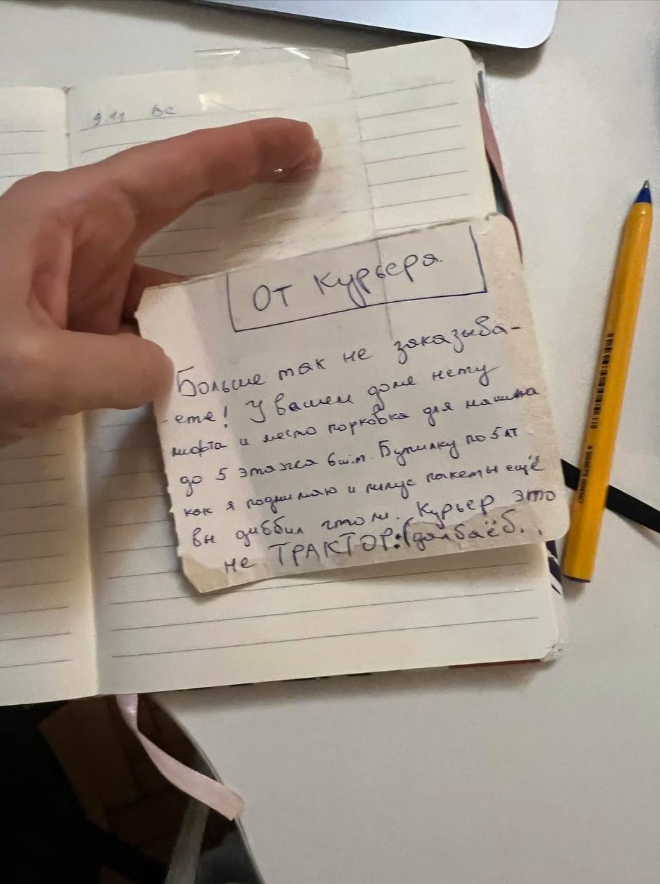 9.11 вс
От Курьера.
Больше так не заказыва-
ете! У вашем доме нету
лифта и место порковка для машина
до 5 этажа 6 шт. Бутилку по 5 лт
как я поднимаю и плус пакеты ещё
вы диббил что ли. Курьер это
не ТРАКТОР:(долбаёб.